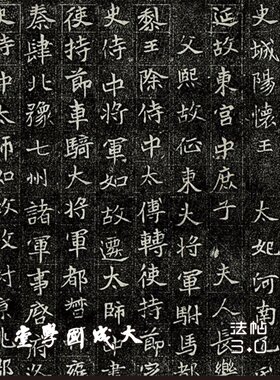 史城陽懷王 太妃河南
延故東宮中庶子 夫人長樂
父熙故征東大將軍駙馬都
黎王除侍中太傅轉使持節
史侍中將軍如故遷太師中書
使持節車騎大將軍都督
秦肆北豫七州諸軍事啓府
侍中太師如故
大成國學堂
法帖
3.0